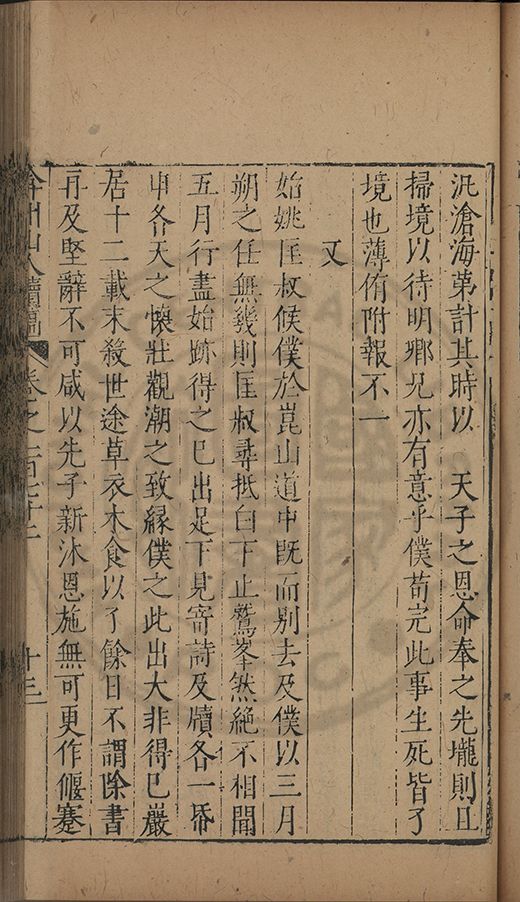 汎滄海第計其時以　天子之恩命奉之先壠則且
掃境以待明鄉兄亦有意乎僕苟完此事生死皆了
境也薄侑附報不一
又
始姚匡叔候僕於崑山道中既而别去及僕以三月
朔之任無幾則匡叔尋抵白下止鷲峯然絶不相聞
五月行盡始跡得之巳出足下見寄詩及牘各一帋
申各天之懷壯觀潮之致縁僕之此出大非得巳巖
居十二載末殺世途草衣木食以了餘日不謂除書
再及堅辭不可咸以先子新沐恩施無可更作偃蹇
弇州山人續稿　卷之一百　十三